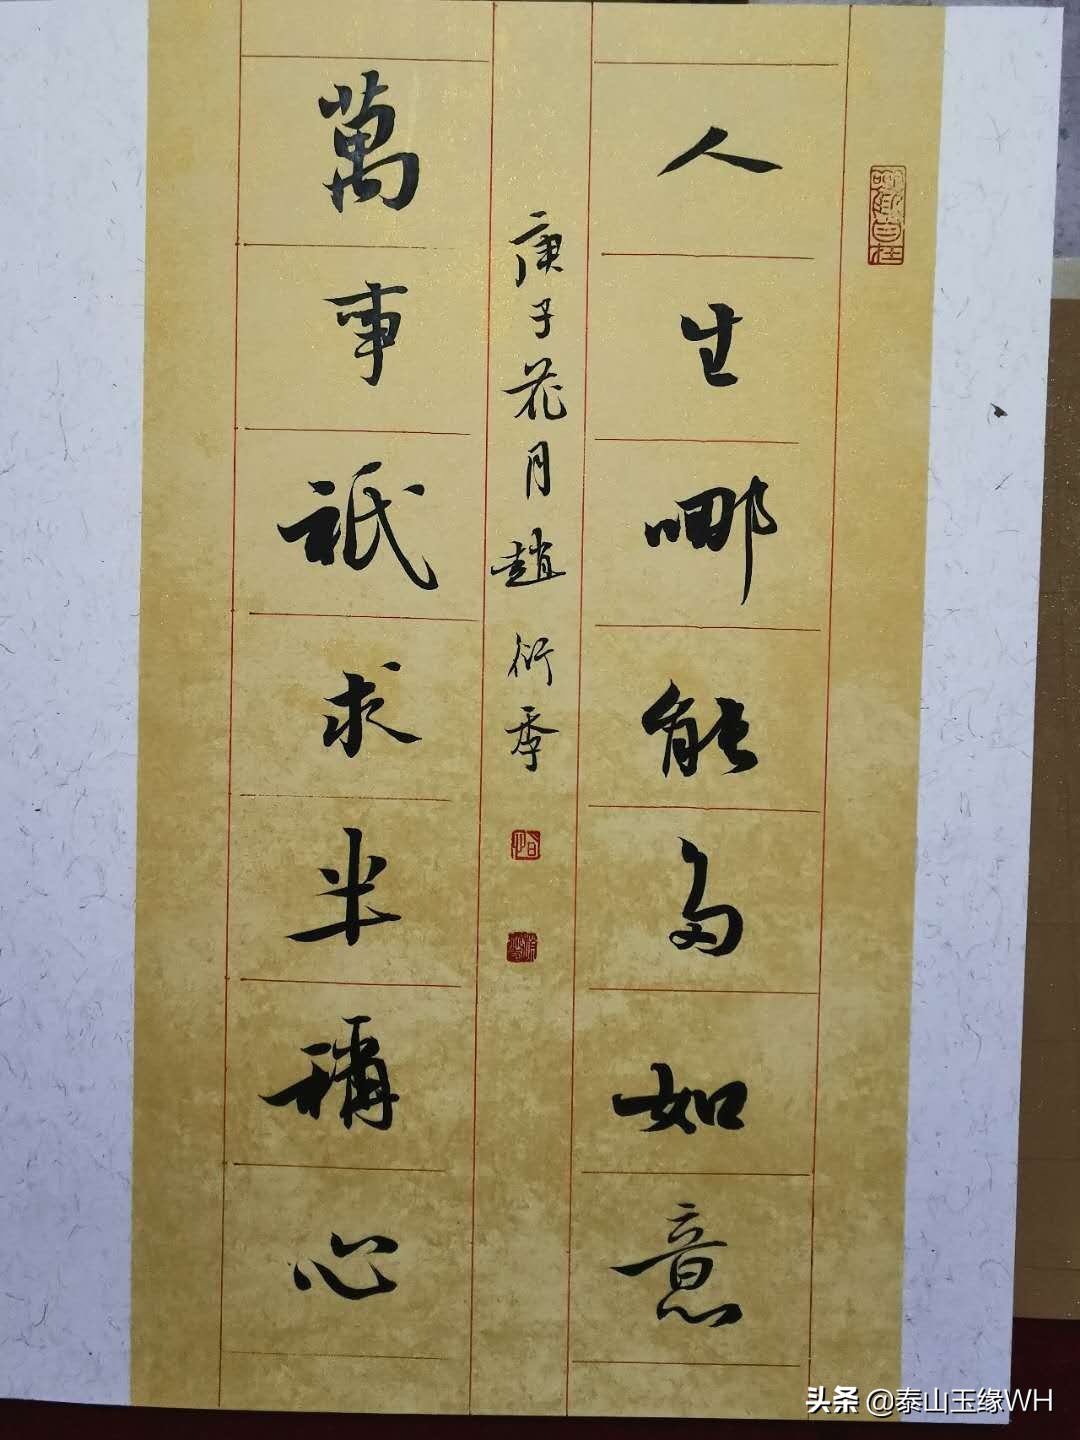 人生哪能多如意
庚子花月趙衍季
萬事祇求半稱心
头条 @泰山玉缘WH